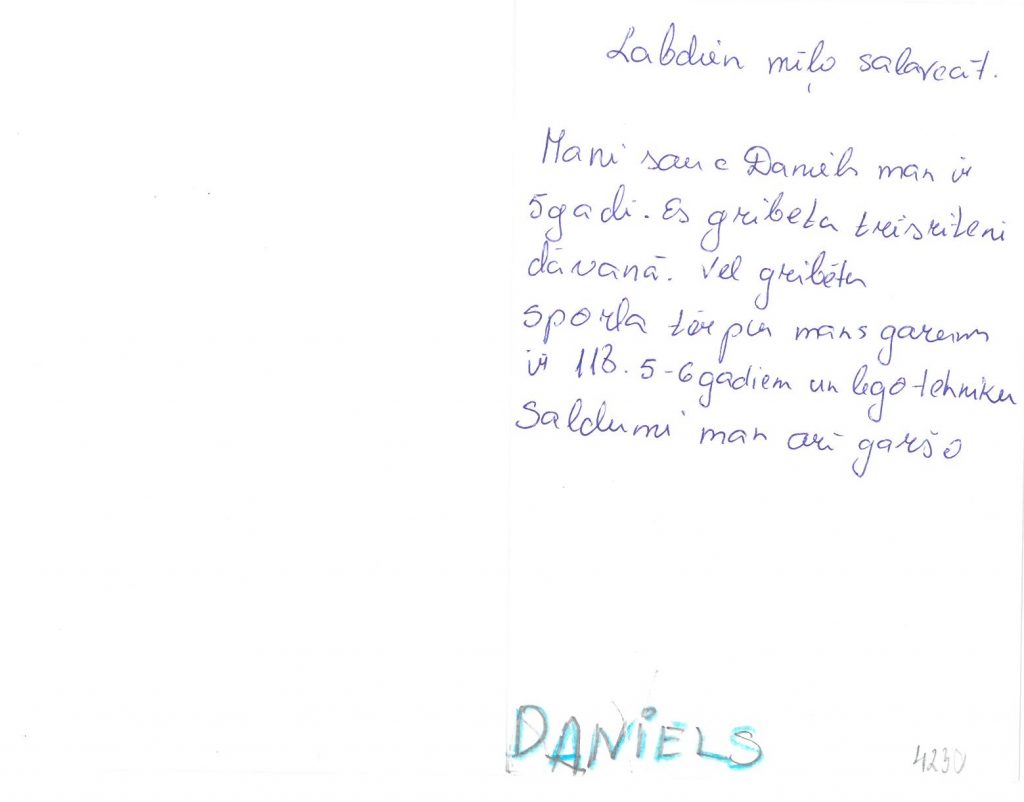 Labdien mīļo salavecāt.
Mani sauc Daniels man ir
5gadi. Es gribetu trisriteni
dāvanā. Vel gribētu
sporta tērpu mans garums
ir 118. 5-6gadiem un lego tehniku
Saldumi man arī garšo
DANIELS
4230